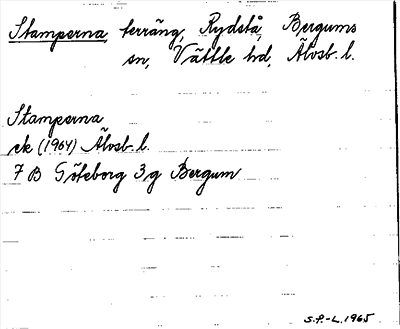 Stamperna, terräng, Rydstå, Bergums
sn, Vättle hd, Älvsb. l.
Stamperna
ek (1964) Älvsb. l.
7 B Göteborg 3g Bergum
S.P.-L. 1965